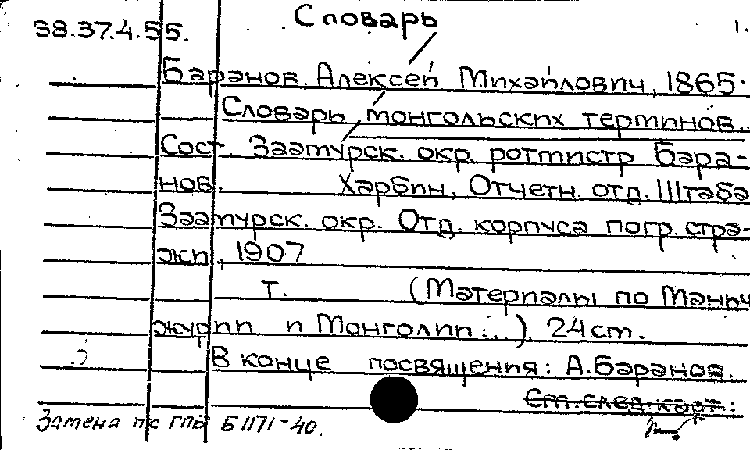 Словарь
38.37.4.55.
1.
Баранов, Алексей Михайлович, 1865-
Словарь монгольских терминов.
Сост. Заамурск. окр. ротмистр Бара-
нов. Харбин, Отчетн. отд. Штаба
Заамурск. окр. Отд. корпуса погр. стра-
жи, 1907
т. (Материалы по Мань-
журии и Монголии...) 24 cm.
В конце посвящения: А. Баранов.
См. след. карт.:
Замена пк ГПБ Б 1171-40.